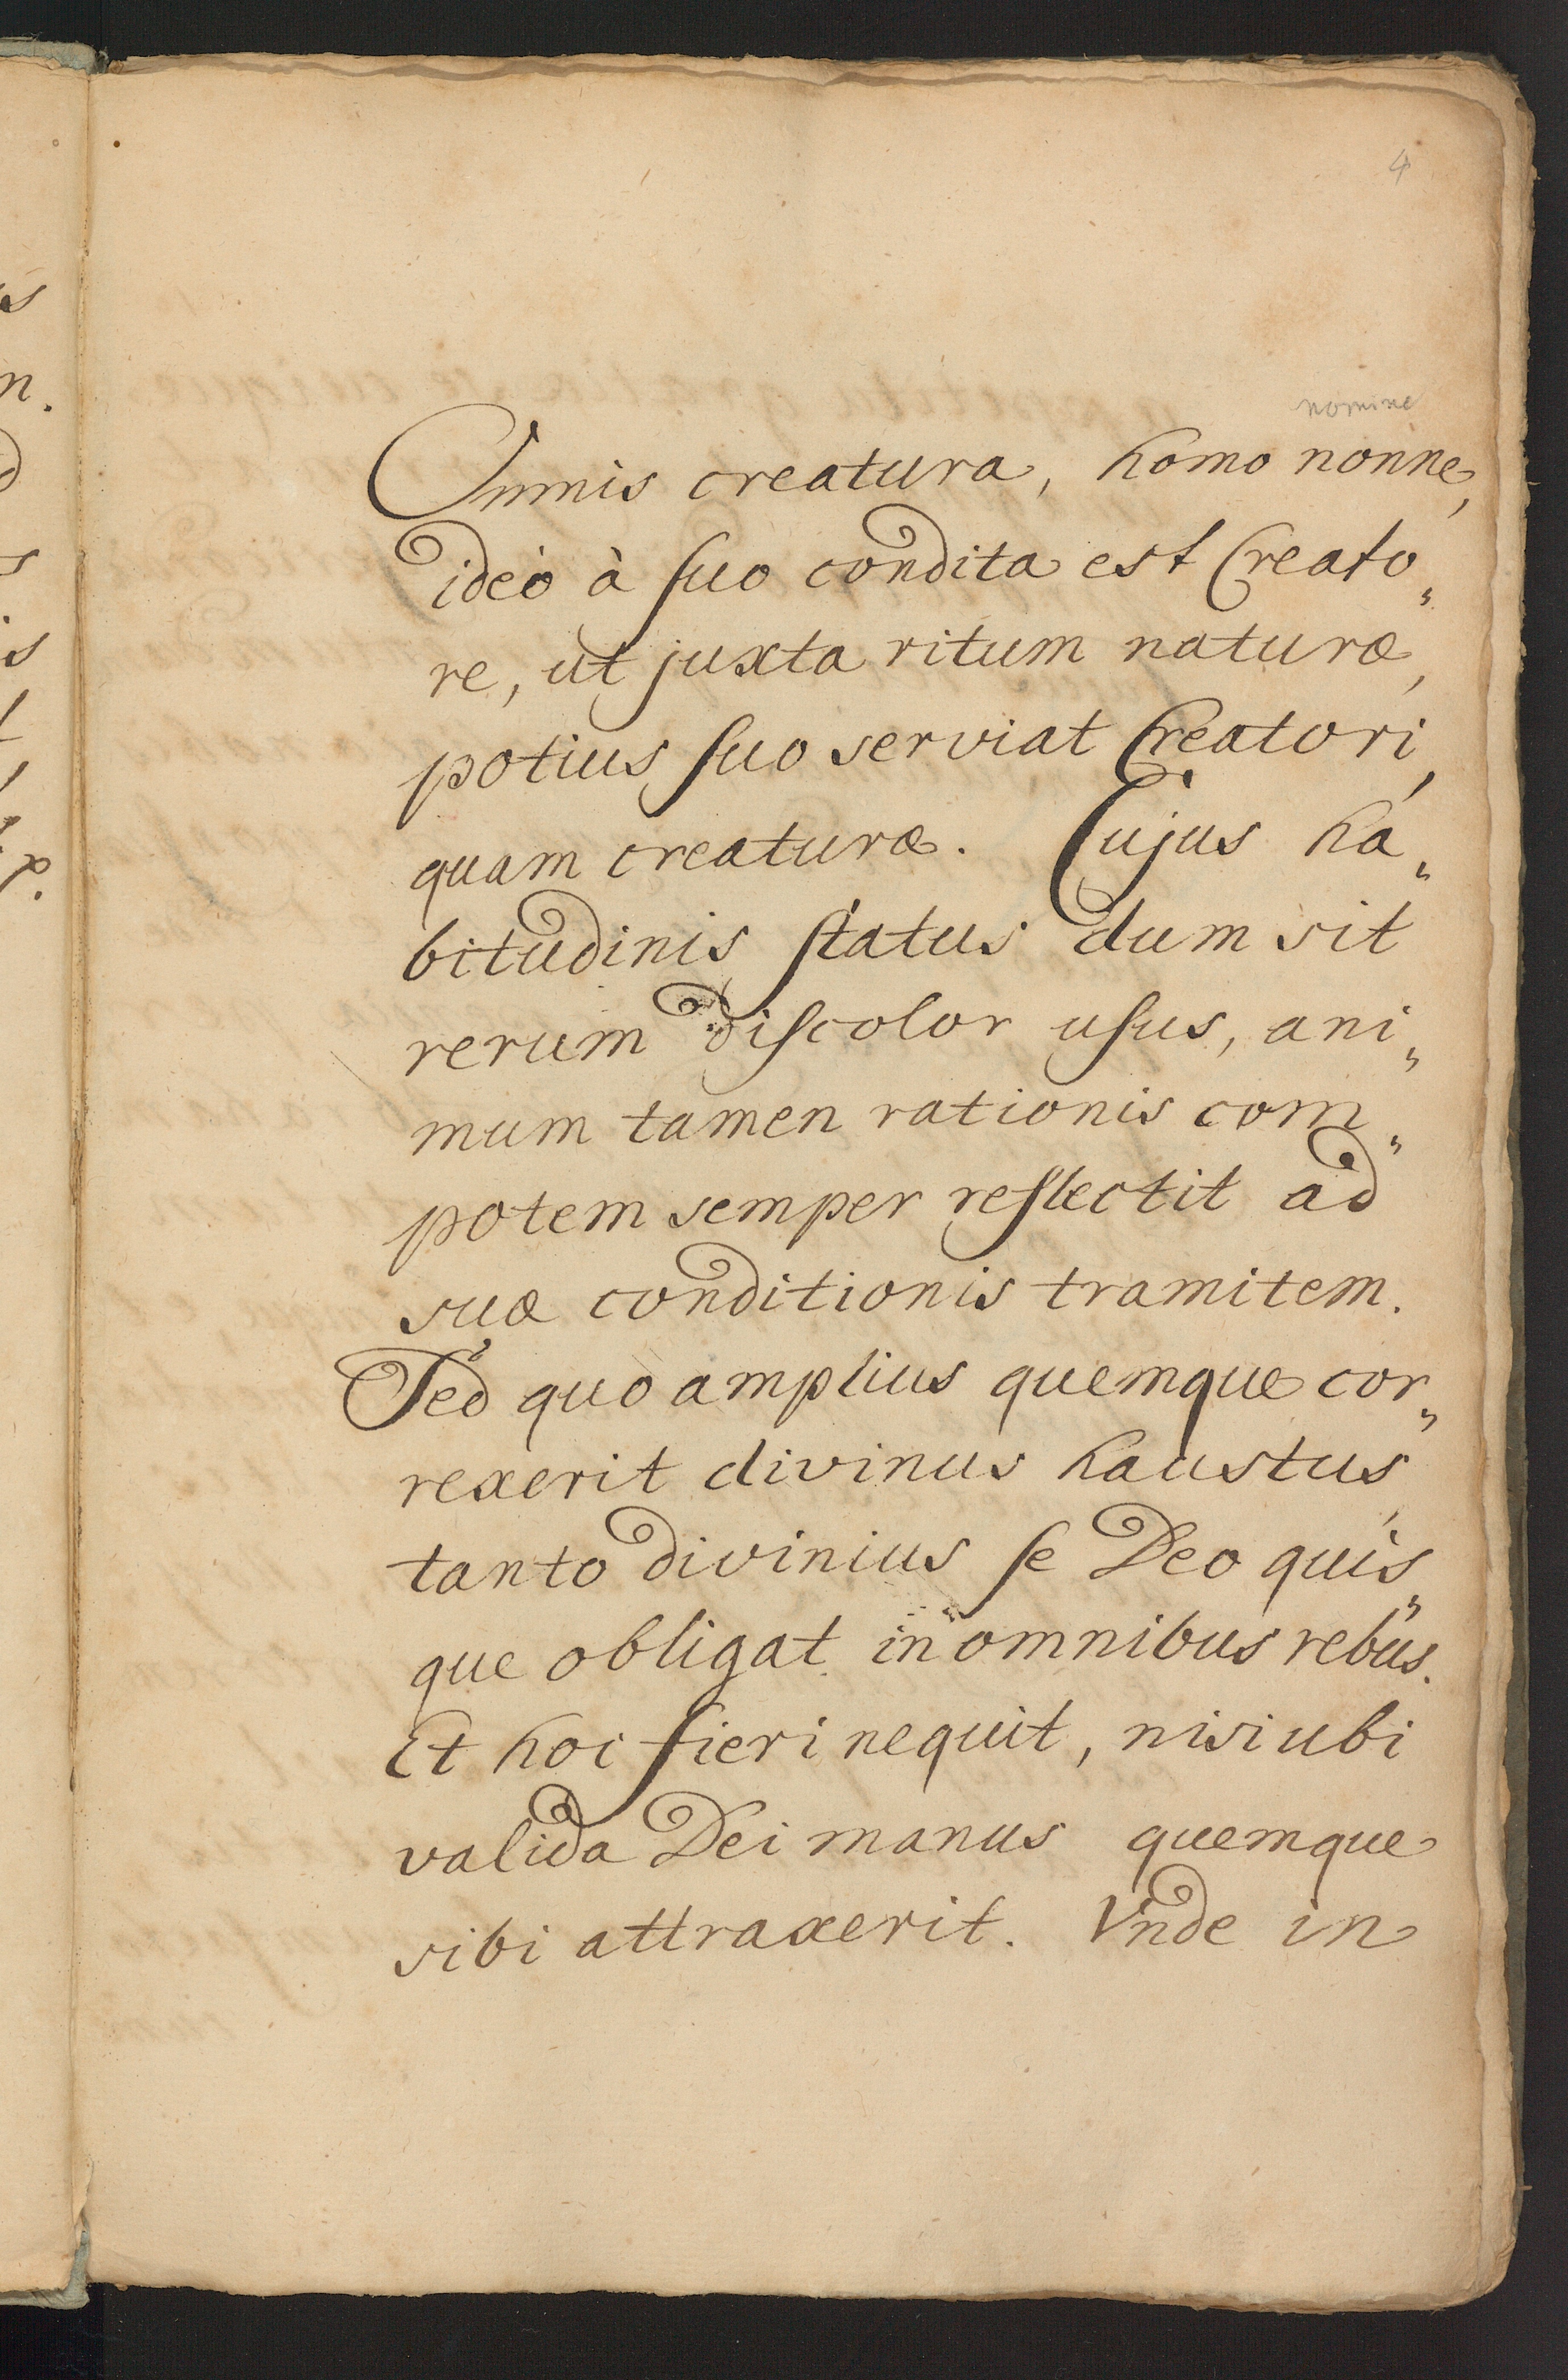 4
nomine
Omnis creatura, homo nonne,
ideò à suo condita est Creato„
re, ut juxta ritum naturæ,
potius suo serviat Creatori,
quam creaturæ. Cujus ha„
bitudinis status dum sit
rerum discolor usus, ani„
mum tamen rationis com„
potem semper reflectit ad
suæ conditionis tramitem.
Sed quò amplius quemque cor„
rexerit divinus haustus,
tanto divinius se Deo quis„
que obligat in omnibus rebus.
Et hoc fieri nequit, nisi ubi
valida Dei manus quemque
sibi attraxerit. Vnde in